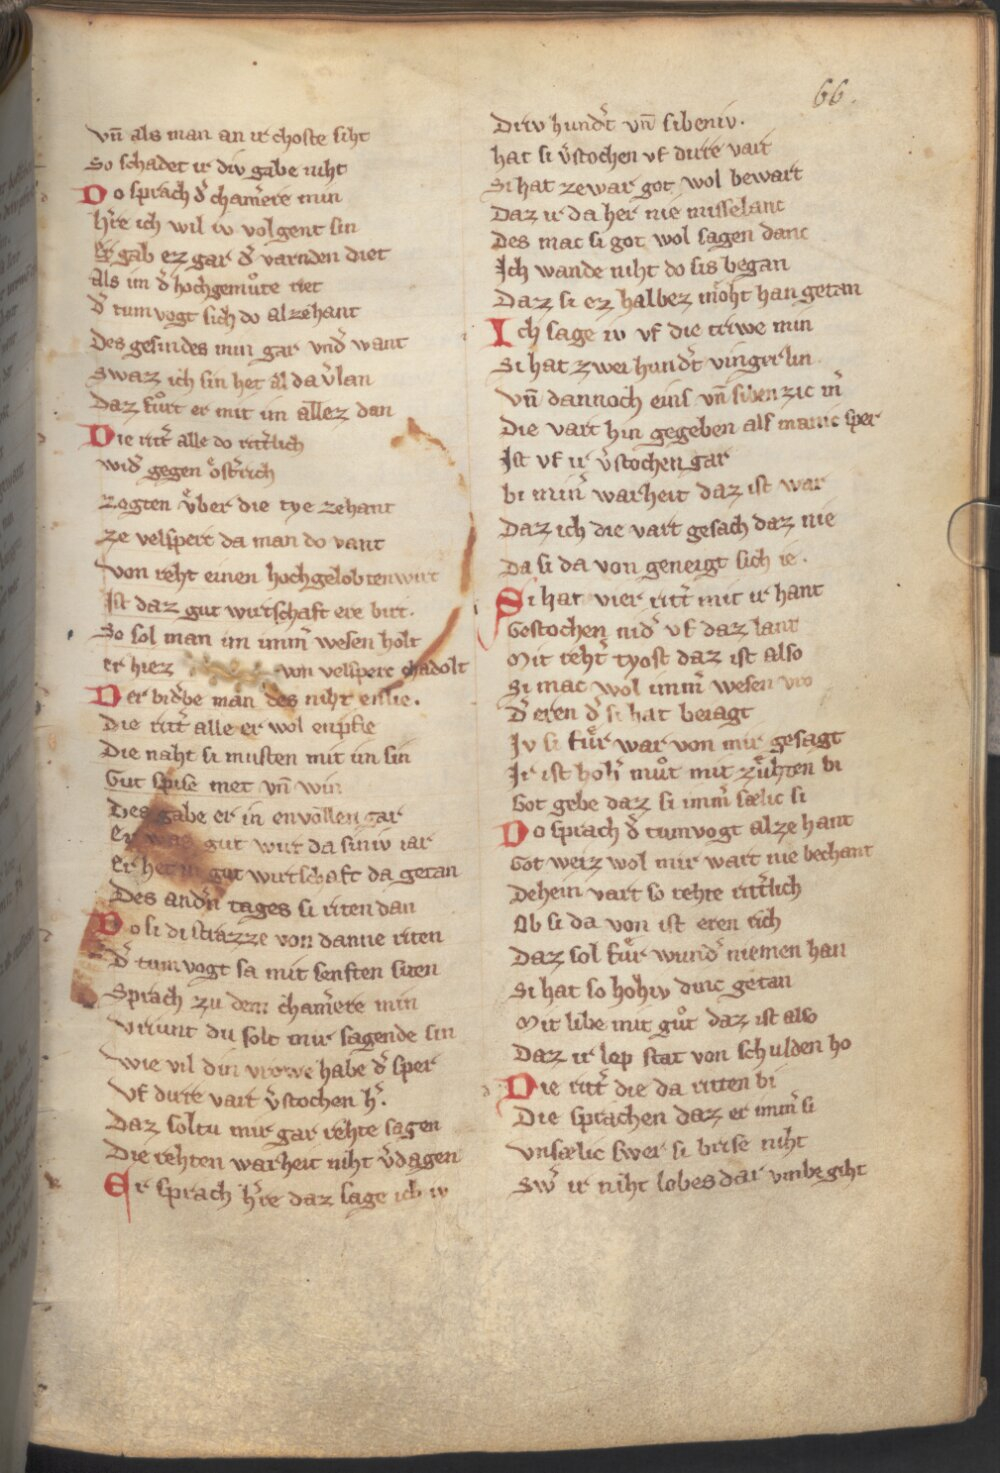 66.
vn̄ als man an ir choste siht
So schadet ir div gabe niht
Do sprach d̾ cham̾ere min
h̾re ich wil iv volgent sin
Er gab ez gar d̾ varnden diet
Als im d̾ hochgemuͦte riet
d̾ tumvogt sich do alzehant
Des gesindes min gar vnd̾ want
Swaz ich sin het al da v̾lan
Daz fuͦrt er mit im allez dan
Die ritt̾ alle do ritt̾lich
wid̾ gegen oͤst̾rich
zogten vͤber die tye zehant
ze velsperc da man do vant
von reht einen hochgelobten wirt
Ist daz gut wirtschaft ere birt.
So sol man im imm̾ wesen holt
er hiez von velsperc chadolt
Der bid̾be man des niht enlie.
Die ritt̾ alle er wol enpfie
Die naht si musten mit im sin
Gut spise met vn̄ win
Des gabe er in envollen gar
Er was gut wirt da siniv iar
Er het in gut wirtschaft da getan
Des and̾n tages si riten dan
Do si di strazze von danne riten
d̾ tumvogt sa mit senften siten
Sprach zu dem cham̾ere min
vriunt du solt mir sagende sin
wie vil din vrowe habe d̾ sper
vf dirre vart v̾stochen h̾.
Daz soltu mir gar rehte sagen
Die rehten warheit niht v̾dagen
Er sprach h̾re daz sage ich iv
Driv hund̾t vn̄ sibeniv.
hat si v̾stochen vf dirre vart
Si hat zewar got wol bewart
Daz ir da her nie misselanc
Des mac si got wol sagen danc
Ich wande niht do sis began
Daz si ez halbez moͤht han getan
Ich sage iv vf die triwe min
Si hat zwei hund̾t vingerlin
vn̄ dannoch eins vn̄ sibenzic m̾
Die vart hin gegeben als manic sper
Ist vf ir v̾stochen gar
bi min̾ warheit daz ist war
Daz ich die vart gesach daz nie
Da si da von geneigt sich ie.
Si hat vier ritt̾ mit ir hant
Gestochen nid̾ vf daz lant
Mit reht̾ tyost daz ist also
Si mac wol imm̾ wesen vro
d̾ eren d̾ si hat beiagt
Iv si fuͤr war von mir gesagt
Ir ist hoh̾ muͦt mit zuͤhten bi
Got gebe daz si imm̾ sælic si
Do sprach d̾ tumvogt alzehant
Got weiz wol mir wart nie bechant
Dehein vart so rehte ritt̾lich
Ob si da von ist eren rich
Daz sol fuͤr wund̾ niemen han
Si hat so hohiv dinc getan
Mit libe mit guͦt daz ist also
Daz ir lop stat von schulden ho
Die ritt̾ die da ritten bi
Die sprachen daz er imm̾ si
vnsælic swer si brise niht
Sw̾ ir niht lobes dar vmbe giht